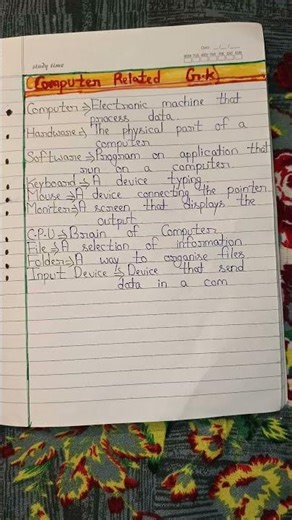 Study Name
Date
(Computer Related G.K)
Computer⇒Electronic machine that
process data
Hardware⇒ The physical part of a
computer
Software⇒Program on application that
run on a computer
Keyboard⇒A device typing
Mouse⇒A device connecting the pointer
Moniter⇒A screen that displays the
output
C.P.U⇒Brain of Computer
File⇒A selection of information
Folder⇒A way to organise files
Input Device ⇒Device that send
data in a com